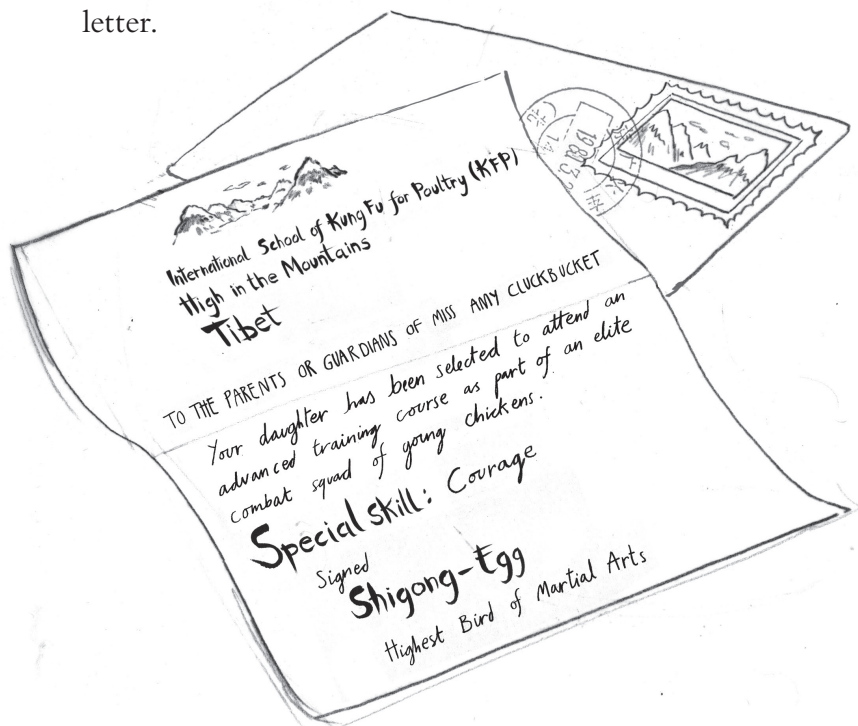 letter.
International School of Kung Fu for Poultry (KFP)
High in the Mountains
Tibet
TO THE PARENTS OR GUARDIANS OF MISS AMY CLUCKBUCKET
Your daughter has been selected to attend an
advanced training course as part of an elite
combat squad of young chickens.
Special skill: Courage
Signed
Shigong-Egg
Highest Bird of Martial Arts